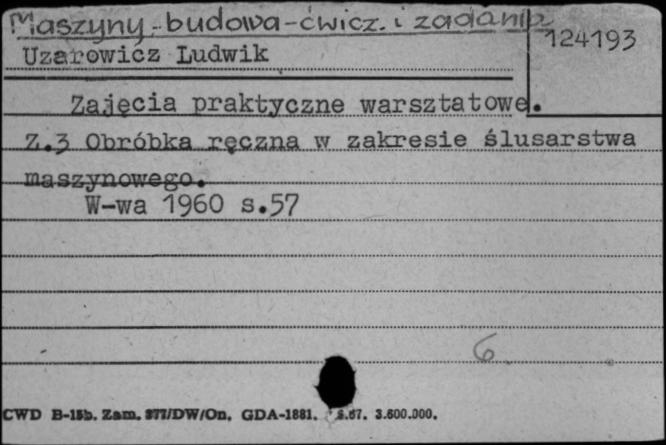 Maszyny - budowa - ćwicz. i zadania
124193
Uzarowicz Ludwik
Zajęcia praktyczne warsztatowe.
Z.3 Obróbka ręczna w zakresie ślusarstwa
maszynowego.
W-wa 1960 s.57
6
CWD B-15b. Zam. 277/DW/On. GDA-1881. 3.600.000.